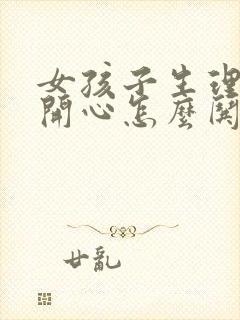 女孩子生理
開心怎麼関
廿亂